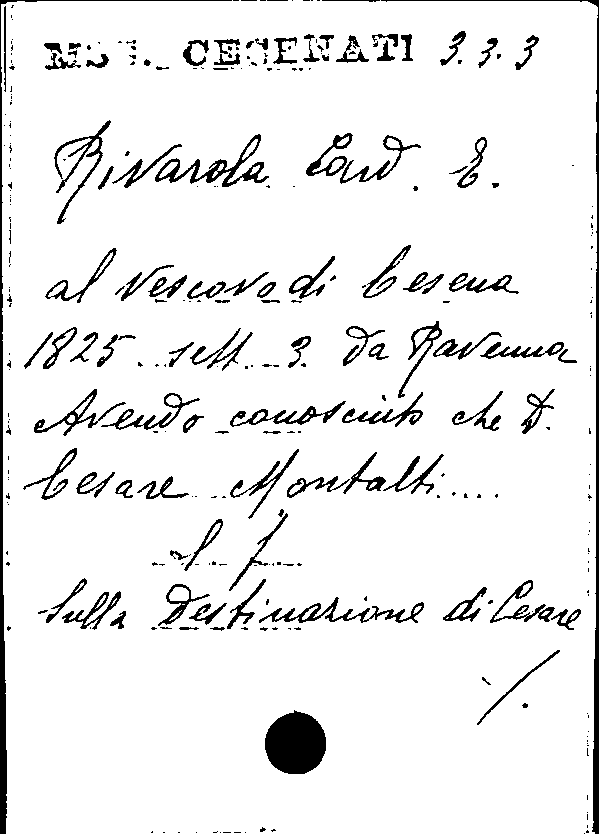 MSS. CESENATI 3.3.3
Rivarola Card. E.
al Vescovo di Cesena
1825 sett. 3. Da Ravenna
Avendo conosciuto che D.
Cesare Montalti....
l. f.
Sulla Destinazione di Cesare
./.